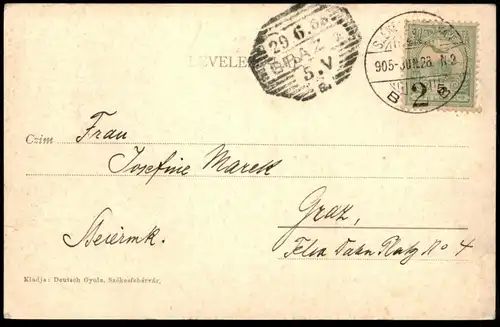 29.6.05
GRAZ
5.V
LEVELE
905 JUN. 28 N 2
B
2
Czím
Frau
Josefine Marek
Graz,
Steiermk.
Felix Dahn Platz No 4
Kiadja: Deutsch Gyula, Székesfehérvár.